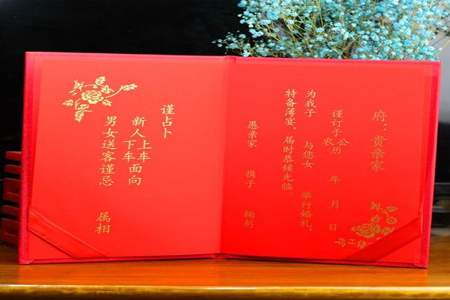 府：贵亲家
谨订于公农历 年 月 日
为我子 与您女 举行婚礼、
特备薄宴、届时恭候光临
愚亲家 携子 鞠躬
谨占卜
新人上车下车面向
男女送客谨忌 属相